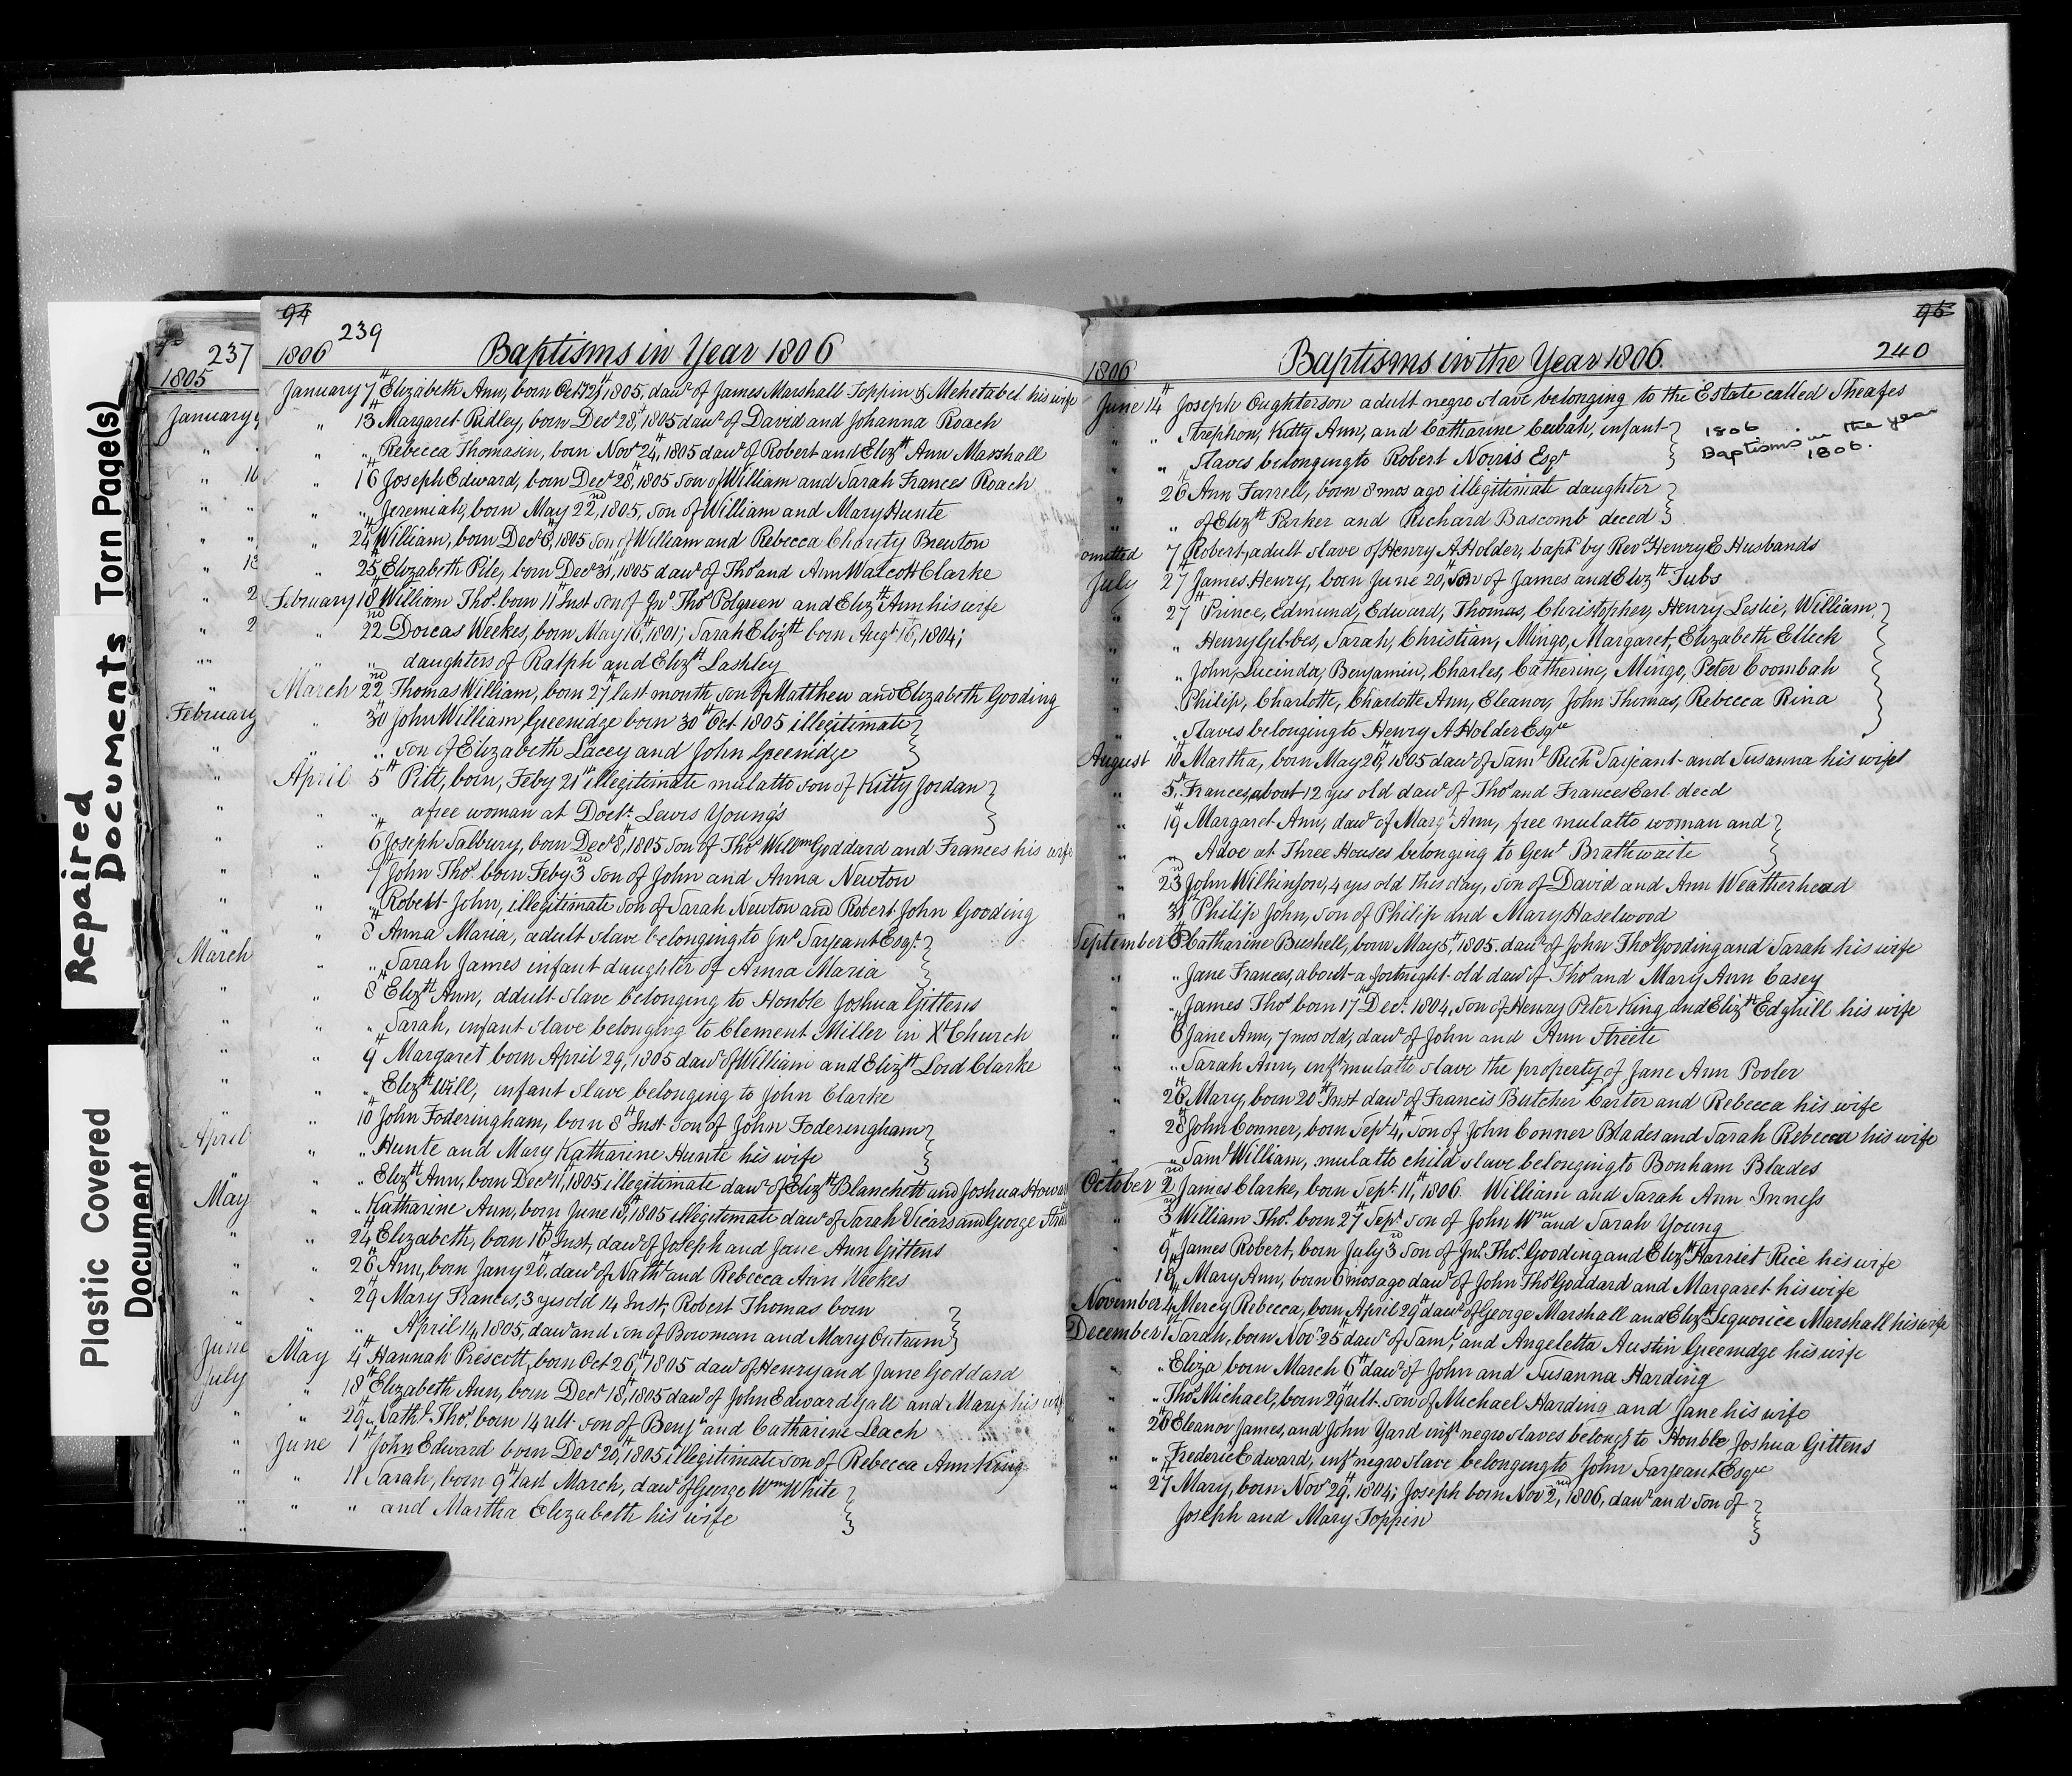 Repaired Documents Torn Page(s)
Plastic Covered Document
237
1805
January
" "
" 16
" "
" "
" 13
" 2
" 2
" "
"
February
"
"
"
"
"
"
March
"
"
"
"
April
May
"
"
"
June
July
94
239
1806 Baptisms in Year 1806
January 7th Elizabeth Ann, born Oct 12th, 1805, dawr of James Marshall Toppin & Mehetabel his wife
" 13th Margaret Ridley, born Decr 28th, 1805 dawr of David and Johanna Roach
" " Rebecca Thomasin, born Novr 24th, 1805 dawr of Robert and Elizth Ann Marshall
" 16th Joseph Edward, born Decr 28th, 1805 son of William and Sarah Frances Roach
" " Jeremiah, born May 22nd, 1805, son of William and Mary Hunte
" 24th William, born Decr 8th, 1805 son of William and Rebecca Charity Brewton
" 25th Elizabeth Pile, born Decr 31, 1805 dawr of Thos and Ann Walcott Clarke
February 18th William Thos. born 11th Inst son of Jno Thos Polgreen and Elizth Ann his wife
" 22nd Dorcas Weekes, born May 16th, 1801; Sarah Elizth born Augt 16, 1804;
" daughters of Ralph and Elizth Lashley
March 22nd Thomas William, born 27th last month son of Matthew and Elizabeth Gooding
" 30th John William Greenidge born 30th Oct 1805 illegitimate
" " son of Elizabeth Lacey and John Greenidge
April 5th Pitt, born, Feby 21st illegitimate mulatto son of Kitty Jordan
" " a free woman at Doctr. Lewis Young's
" 6th Joseph Salbury, born Decr 8th, 1805 son of Thos Willm Goddard and Frances his wife
" 7th John Thos. born Feby 3rd son of John and Anna Newton
" " Robert John, illegitimate son of Sarah Newton and Robert John Gooding
" 8th Anna Maria, adult slave belonging to Jno Sarjeant Esqr.
" " Sarah James infant daughter of Anna Maria
" 8th Elizth Ann, adult slave belonging to Honble Joshua Gittens
" " Sarah, infant slave belonging to Clement Miller in Xt Church
" 9th Margaret born April 29, 1805 dawr of William and Elizth Lord Clarke
" " Elizth Will, infant slave belonging to John Clarke
" 10th John Foderingham, born 8th Inst Son of John Foderingham
" " Hunte and Mary Katharine Hunte his wife
" " Elizth Ann, born Decr 11th, 1805 illegitimate dawr of Elizth Blanchett and Joshua
" " Katharine Ann, born June 18th, 1805 illegitimate dawr of Sarah Vicars and George
" 24th Elizabeth, born 16th Inst, dawr of Joseph and Jane Ann Gittens
" 26th Ann, born Jany 20th, dawr of Nathl and Rebecca Ann Weekes
" 29th Mary Frances, 3 yrs old 14 Inst, Robert Thomas born
" " April 14, 1805, dawr and son of Bowman and Mary Outram
May 4th Hannah Prescott, born Oct 26th, 1805 dawr of Henry and Jane Goddard
" 18th Elizabeth Ann, born Decr 18th, 1805 dawr of John Edward Gall and Mary his wife
" 29th Nathl. Thos. born 14 ult. son of Benjn and Catharine Leach
June 1st John Edward born Decr 20th, 1805 illegitimate son of Rebecca Ann King
" 11th Sarah, born 9th last March, dawr of George Wm White
" " and Martha Elizabeth his wife
96
240
1806 Baptisms in the Year 1806.
June 14th Joseph Oughterson adult negro slave belonging to the Estate called Sheafes
" " Strephon, Kitty Ann, and Catharine Cubah, infant
" " Slaves belonging to Robert Norris Esqr
1806
Baptisms in the year
1806.
" 26 Ann Farrell, born 8 mos ago illegitimate daughter
" " of Elizth Parker and Richard Bascomb deced
omitted 7th Robert, adult slave of Henry A Holder, bapt. by Revd Henry E Husbands
July 27th James Henry, born June 20th, Son of James and Elizth Tubs
" 27th Prince, Edmund, Edward, Thomas, Christopher, Henry Leslie, William
" " Henry Gibbes, Sarah, Christian, Mingo, Margaret, Elizabeth Ellech
" " John, Lucinda, Benjamin, Charles, Catherine, Mingo, Peter Coombah
" " Philip, Charlotte, Charlotte Ann, Eleanor, John Thomas, Rebecca Rina
" " Slaves belonging to Henry A Holder Esqre
August 10th Martha, born May 26th, 1805 dawr of Saml Richd Sarjeant and Susanna his wife
" 5th Frances, about 12 yrs old dawr of Thos and Frances Earl deced
" 19th Margaret Ann, dawr of Margt Ann, free mulatto woman and
" " Adoe at Three Houses belonging to Genl Brathwaite
" 23rd John Wilkinson, 4 yrs old this day, son of David and Ann Weatherhead
" 31st Philip John, son of Philip and Mary Haselwood
September 6th Catharine Bushell, born May 5th, 1805. dawr of John Thos Gooding and Sarah his wife
" " Jane Frances, about a fortnight old dawr of Thos and Mary Ann Casey
" " James Thos born 17th Decr. 1804, son of Henry Peter King and Elizth Edghill his wife
" 8th Jane Ann, 7 mos old, dawr of John and Ann Streete
" " Sarah Ann, inft mulatto slave the property of Jane Ann Pooler
" 26th Mary, born 20th Inst dawr of Francis Butcher Carter and Rebecca his wife
" 28th John Conner, born Sept 4th, son of John Conner Blades and Sarah Rebecca his wife
" " Saml William, mulatto child slave belonging to Bonham Blades
October 2nd James Clarke, born Sept. 11th, 1806. William and Sarah Ann Inness
" 3rd William Thos. born 27th Sept. son of John Wm and Sarah Young
" 9th James Robert, born July 3rd son of Jno. Thos. Gooding and Elizth Harriet Rice his wife
" 18th Mary Ann, born 6 mos ago dawr of John Thos Goddard and Margaret his wife
November 4th Mercy Rebecca, born April 29th dawr of George Marshall and Elizth Sequorice Marshall his wife
December 1 Sarah, born Novr 25th dawr of Saml, and Angeletta Austin Greenidge his wife
" " Eliza born March 6th dawr of John and Susanna Harding
" " Thos Michael, born 29th ult. son of Michael Harding and Jane his wife
" 26th Eleanor James, and John Yard inft negro slaves belongg to Honble Joshua Gittens
" " Frederic Edward, inft negro slave belonging to John Sarjeant Esqre
" 27th Mary, born Novr 29th, 1804; Joseph born Novr 2nd, 1806, dawr and son of
Joseph and Mary Toppin